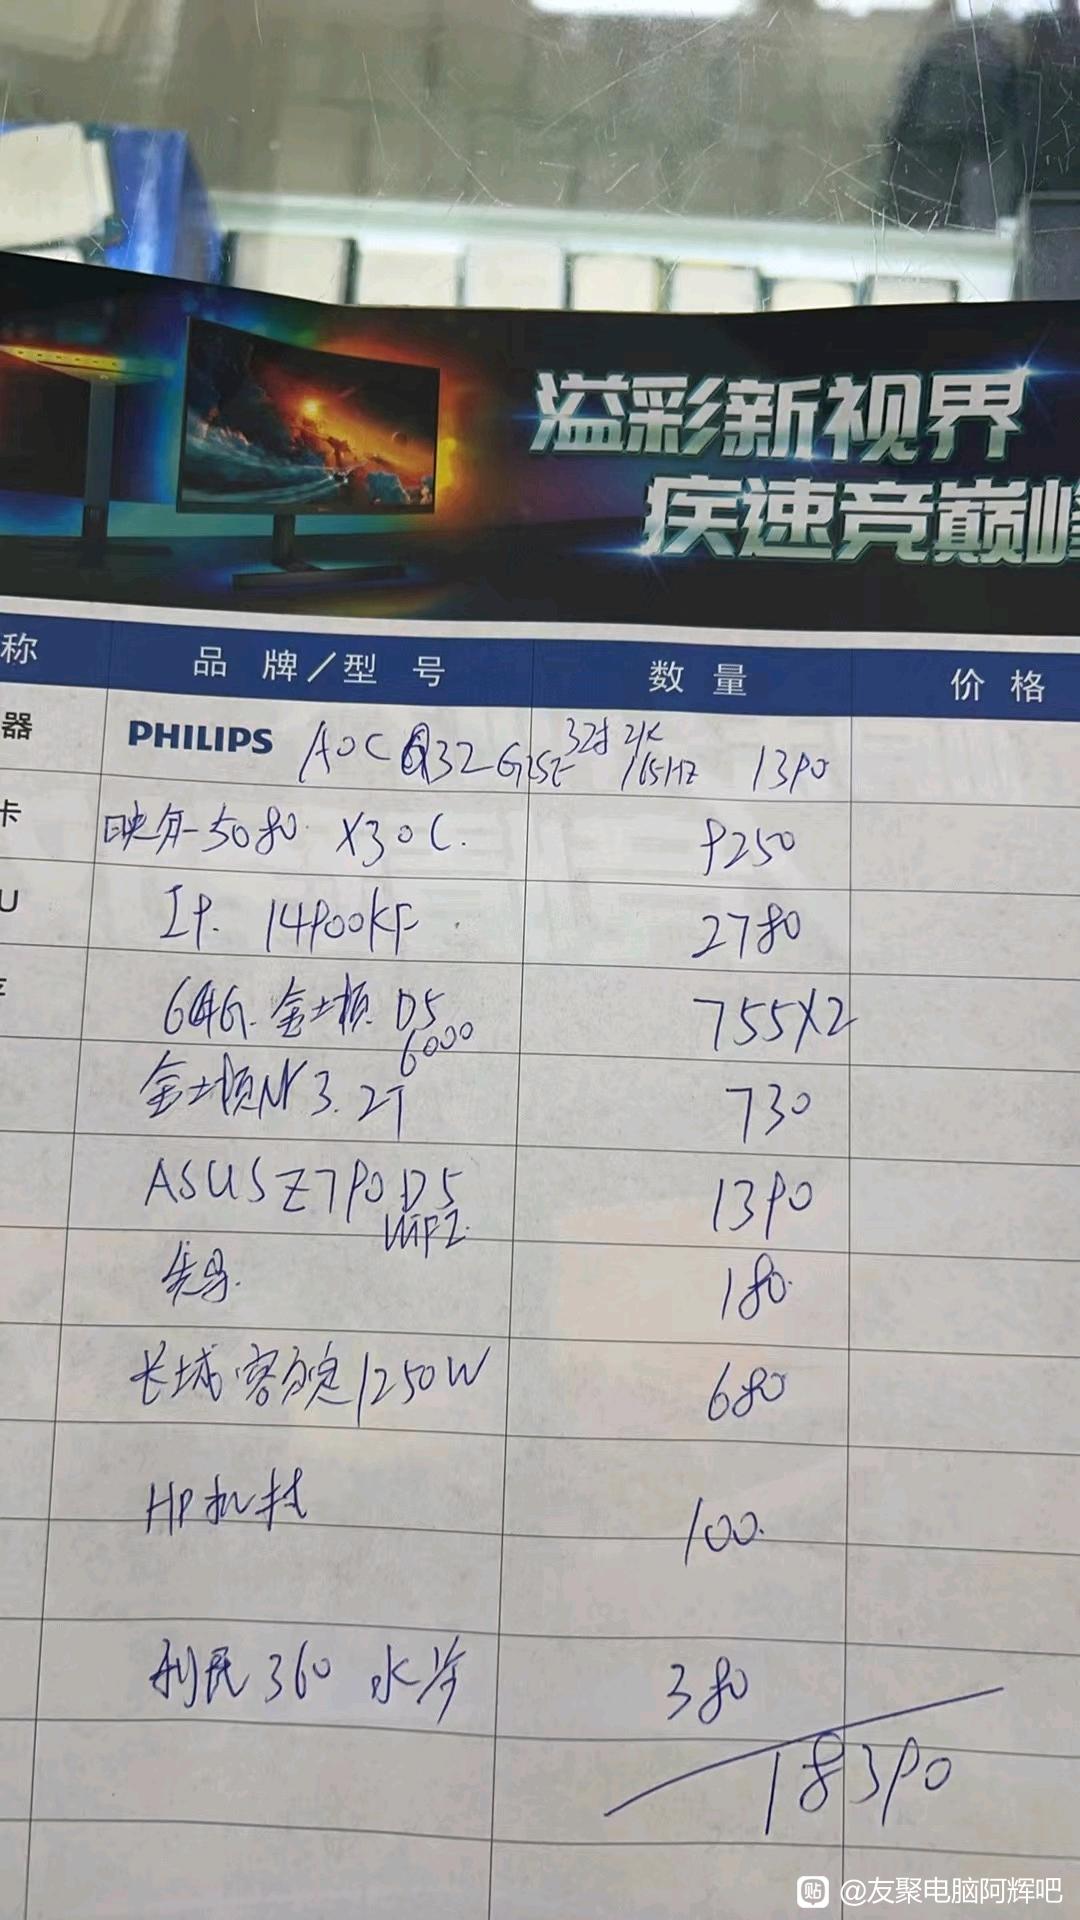 溢彩新视界
疾速竞巅峰
称 品牌/型号 数量 价格
器 PHILIPS AOC Q32G25E 32寸 2K 165HZ 1390
卡 映众5080 X3OC. 9250
U I9. 14900KF 2780
64G. 金士顿 D5 6000 755X2
金士顿NV3.2T 730
ASUS Z790 D5 WIFI. 1390
先马. 180.
长城 1250W 680
HP 100.
利民360 水冷 380
18390
贴 @友聚电脑阿辉吧